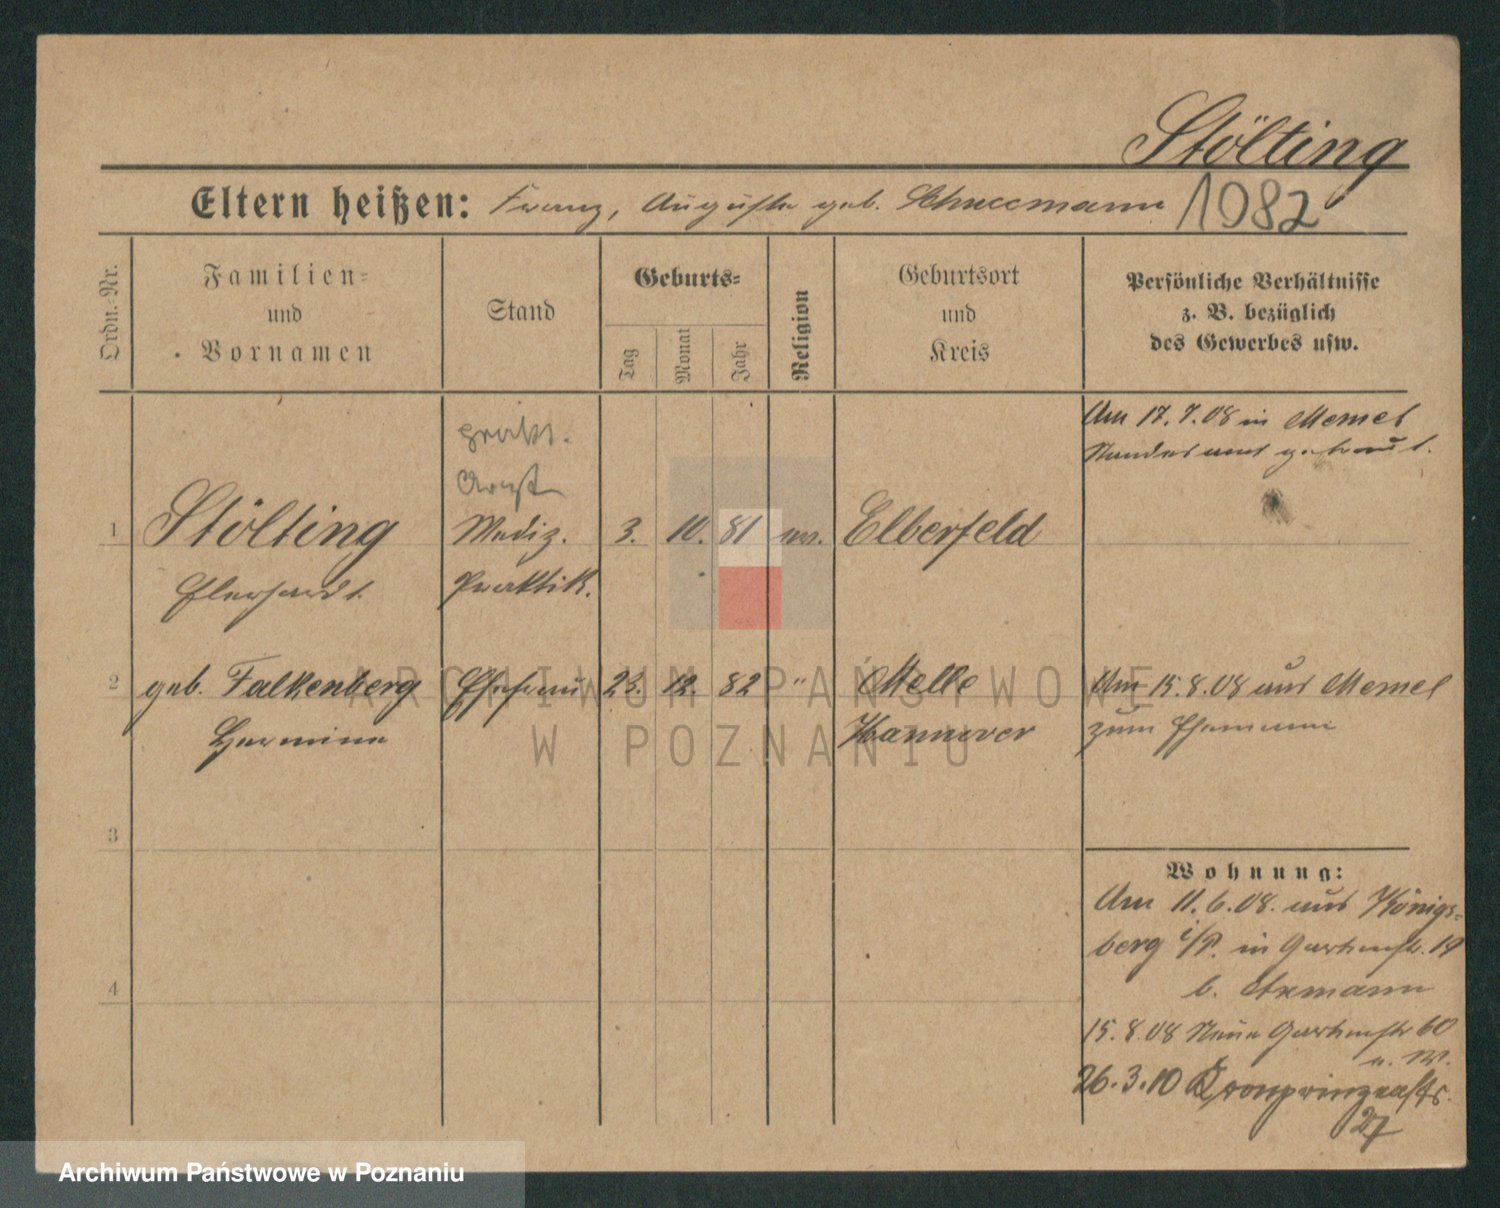 Stölting
Eltern heißen: Franz, Auguste geb. Schneemann 1082
Ordn.-Nr.
Familien-
und
Vornamen
Stand
Geburts-
Tag
Monat
Jahr
Religion
Geburtsort
und
Kreis
Persönliche Verhältnisse
z. B. bezüglich
des Gewerbes usw.
prakt.
Arzt
1 Stölting Mediz. 3. 10. 81 ev. Elberfeld
Eberhardt Praktik.
Am 17.7.08 in Memel
Standesamt getraut.
2 geb. Falkenberg Ehefrau 23. 12. 82 " Melle
Hermine Hannover
Am 15.8.08 aus Memel
zum Ehemann
3
4
Wohnung:
Am 11.6.08. aus Königs-
berg i/P. in Gartenstr. 19
b.
15.8.08 Neue Gartenstr 60
u. W.
26.3.10 Kronprinzenstr.
27
ARCHIWUM PAŃSTWOWE
W POZNANIU
Archiwum Państwowe w Poznaniu